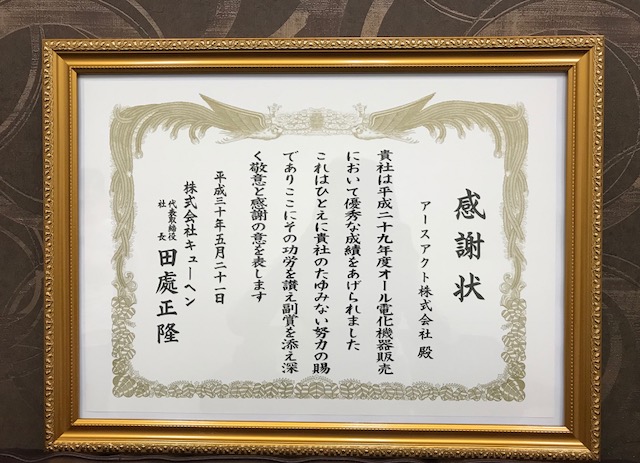 感謝状
アースアクト株式会社 殿
貴社は平成二十九年度オール電化機器販売
において優秀な成績をあげられました
これはひとえに貴社のたゆみない努力の賜
でありここにその功労を讃え副賞を添え深
く敬意と感謝の意を表します
平成三十年五月二十一日
株式会社キューヘン
代表取締役
社長 田處正隆